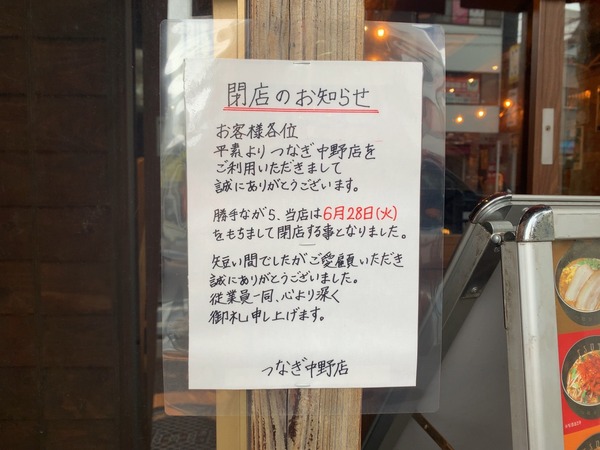 閉店のお知らせ
お客様各位
平素より つなぎ中野店を
ご利用いただきまして
誠にありがとうございます。
勝手ながら、当店は6月28日(火)
をもちまして閉店する事となりました。
短い間でしたがご愛顧いただき
誠にありがとうございました。
従業員一同、心より深く
御礼申し上げます。
つなぎ中野店